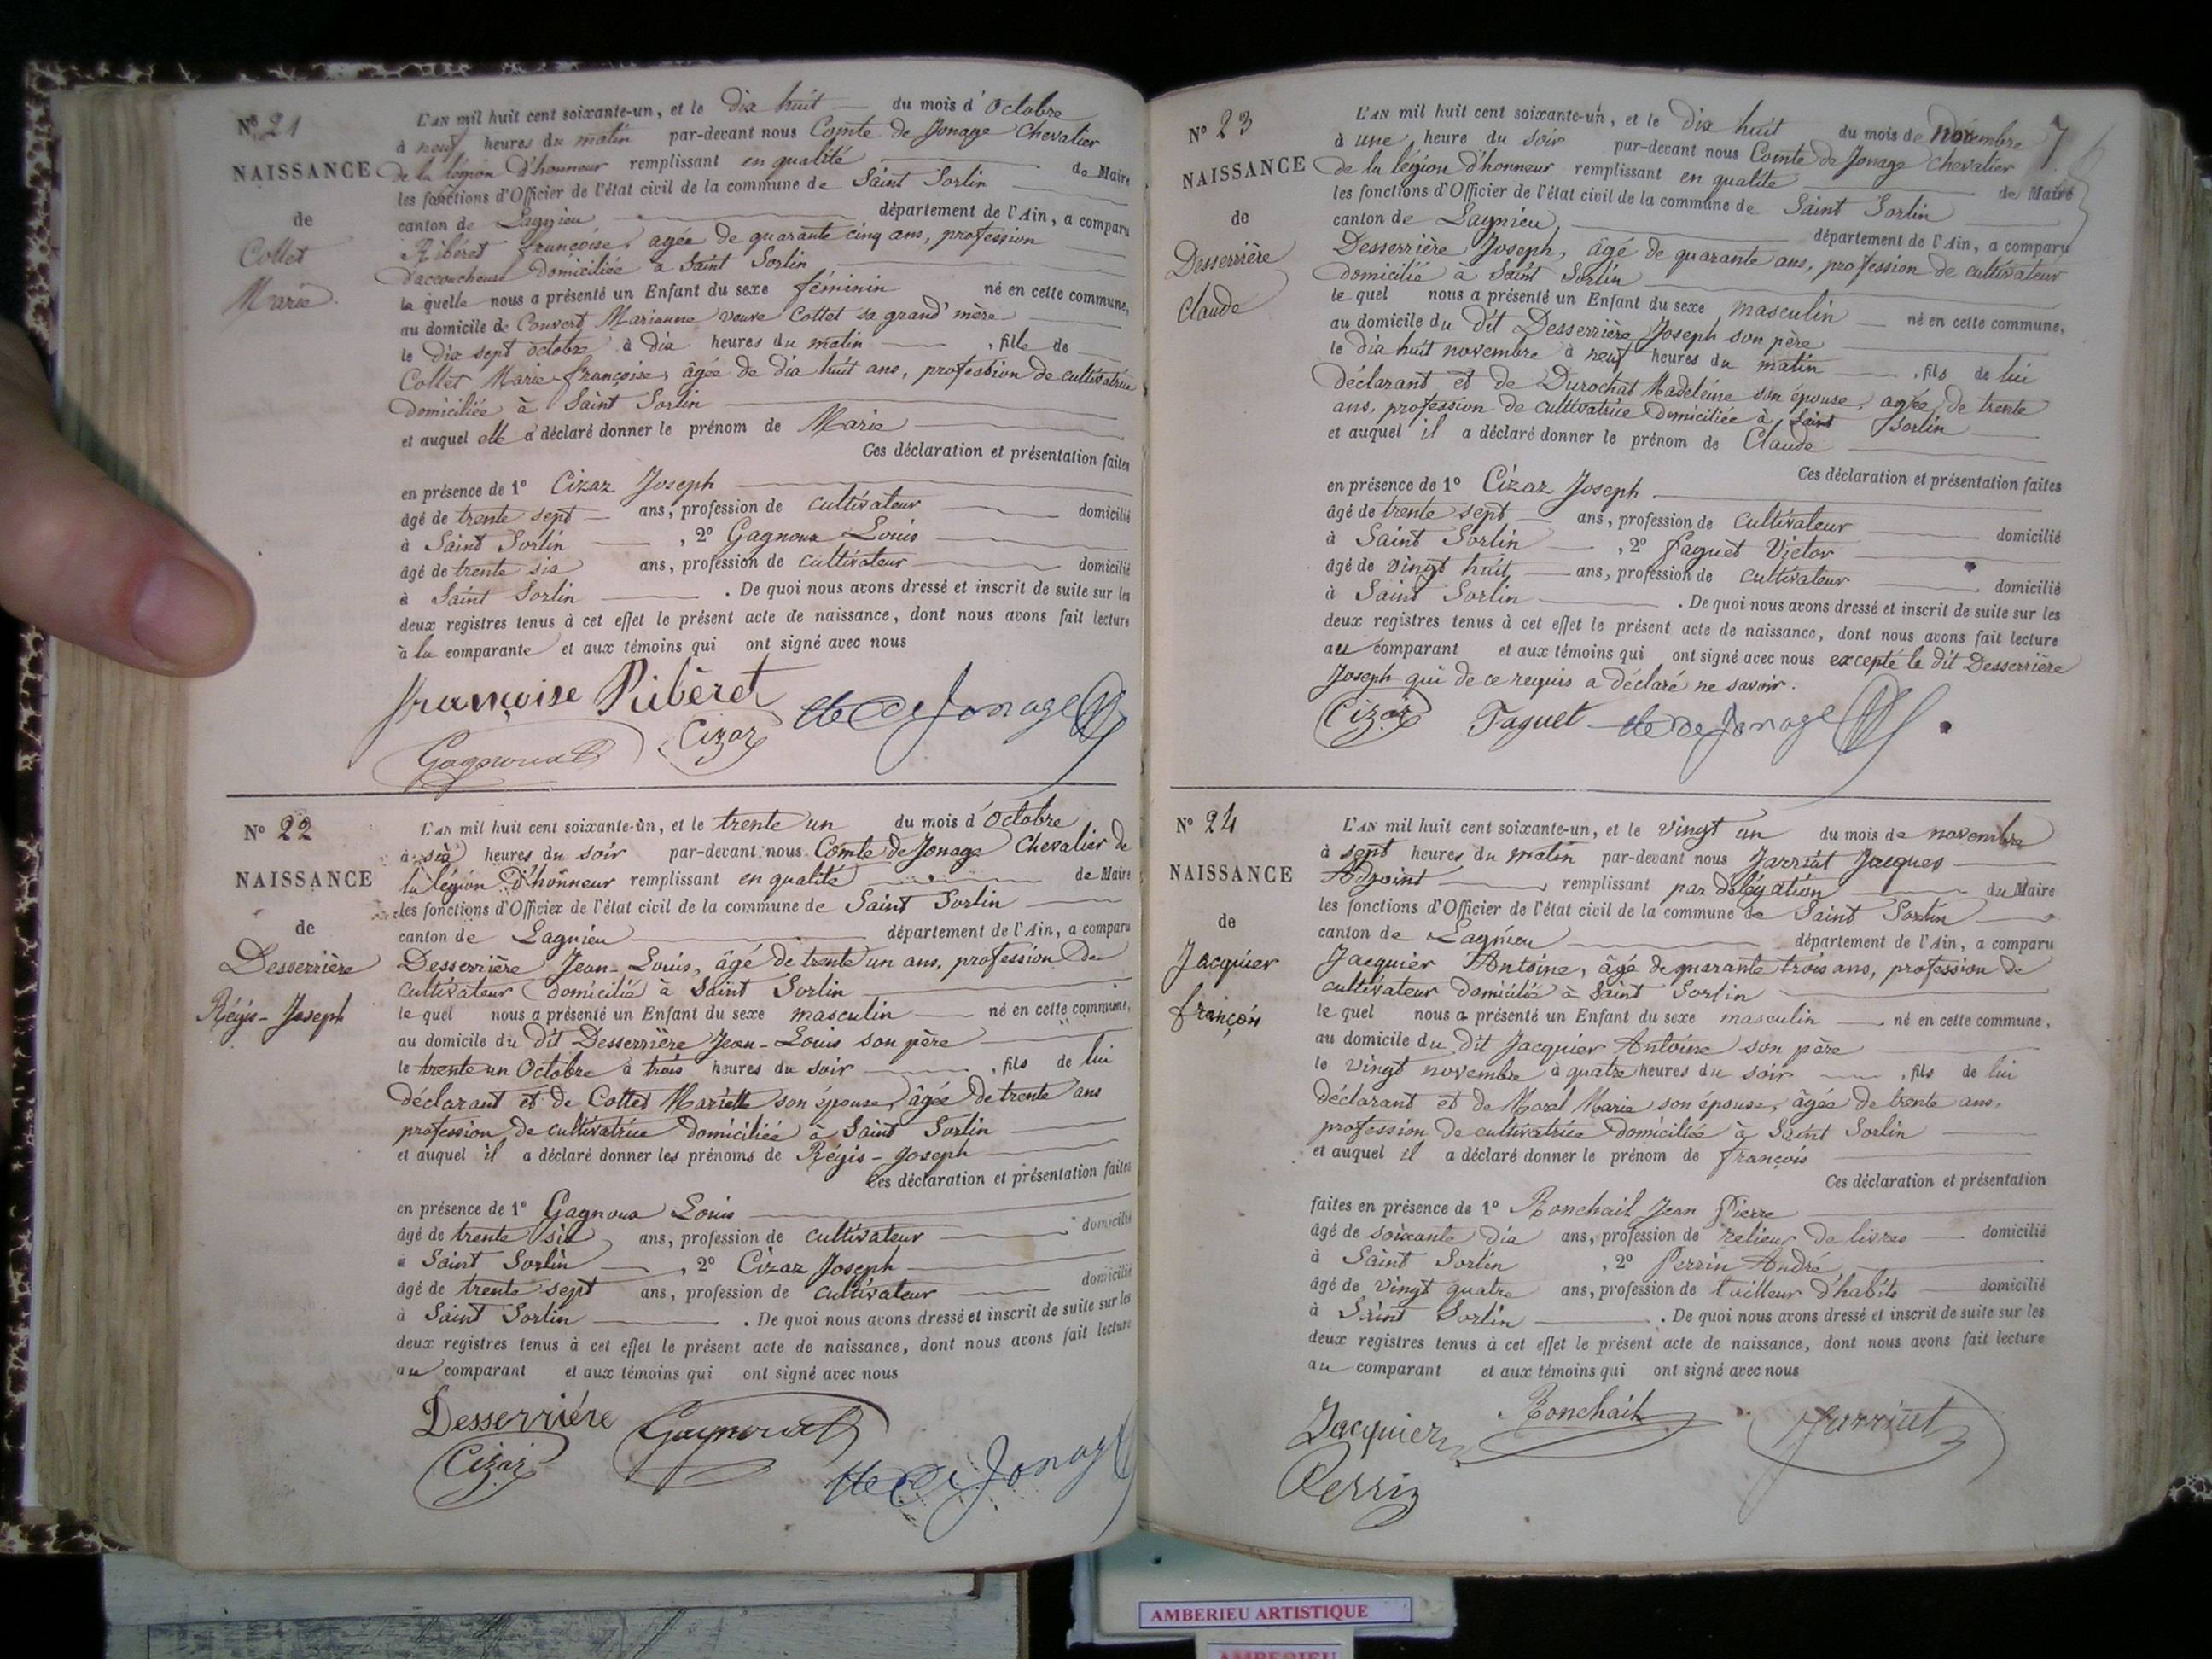 Nº 21
NAISSANCE
de
Collet
Marie
L'AN mil huit cent soixante-un, et le dix huit du mois d'Octobre
à neuf heures du matin par-devant nous Comte de Jonage Chevalier
de la légion d'honneur remplissant en qualité de Maire
les fonctions d'Officier de l'état civil de la commune de Saint Sorlin
canton de Lagnieu département de l'Ain, a comparu
Ribéret françoise, agée de quarante cinq ans, profession
d'accoucheuse domiciliée à Saint Sorlin
la quelle nous a présenté un Enfant du sexe féminin né en cette commune,
au domicile de Convert Marianne veuve Collet sa grand'mère
le dix sept octobre à dix heures du matin, fille de
Collet Marie-françoise, âgée de dix huit ans, profession de cultivatrice
domiciliée à Saint Sorlin
et auquel elle a déclaré donner le prénom de Marie
Ces déclaration et présentation faites
en présence de 1º Cizar Joseph
âgé de trente sept ans, profession de cultivateur domicilié
à Saint Sorlin, 2º Gagnoux Louis
âgé de trente six ans, profession de cultivateur domicilié
à Saint Sorlin. De quoi nous avons dressé et inscrit de suite sur les
deux registres tenus à cet effet le présent acte de naissance, dont nous avons fait lecture
à la comparante et aux témoins qui ont signé avec nous
françoise Ribèret
Cizar
Cte de Jonage
Gagnoux
Nº 22
NAISSANCE
de
Desserrière
Régis-Joseph
L'AN mil huit cent soixante-un, et le trente un du mois d'Octobre
à six heures du soir par-devant nous Comte de Jonage Chevalier de
la légion d'honneur remplissant en qualité de Maire
les fonctions d'Officier de l'état civil de la commune de Saint Sorlin
canton de Lagnieu département de l'Ain, a comparu
Desserrière Jean-Louis, âgé de trente un ans, profession de
cultivateur domicilié à Saint Sorlin
le quel nous a présenté un Enfant du sexe masculin né en cette commune,
au domicile du dit Desserrière Jean-Louis son père
le trente un Octobre à trois heures du soir, fils de lui
déclarant et de Collet Mariette son épouse, âgée de trente ans
profession de cultivatrice domiciliée à Saint Sorlin
et auquel il a déclaré donner les prénoms de Régis-Joseph
Ces déclaration et présentation faites
en présence de 1º Gagnoux Louis
âgé de trente six ans, profession de cultivateur domicilié
à Saint Sorlin, 2º Cizar Joseph
âgé de trente sept ans, profession de cultivateur domicilié
à Saint Sorlin. De quoi nous avons dressé et inscrit de suite sur les
deux registres tenus à cet effet le présent acte de naissance, dont nous avons fait lecture
au comparant et aux témoins qui ont signé avec nous
Desserriére
Gagnoux
Cizar
Cte de Jonage
7
Nº 23
NAISSANCE
de
Desserrière
Claude
L'AN mil huit cent soixante-un, et le dix huit du mois de novembre
à une heure du soir par-devant nous Comte de Jonage Chevalier
de la légion d'honneur remplissant en qualité de Maire
les fonctions d'Officier de l'état civil de la commune de Saint Sorlin
canton de Lagnieu département de l'Ain, a comparu
Desserrière Joseph, âgé de quarante ans, profession de cultivateur
domicilié à Saint Sorlin
le quel nous a présenté un Enfant du sexe masculin né en cette commune,
au domicile du dit Desserrière Joseph son père
le dix huit novembre à neuf heures du matin, fils de lui
déclarant et de Durochat Madeleine son épouse, agée de trente
ans, profession de cultivatrice domiciliée à Saint Sorlin
et auquel il a déclaré donner le prénom de Claude
Ces déclaration et présentation faites
en présence de 1º Cizar Joseph
âgé de trente sept ans, profession de cultivateur domicilié
à Saint Sorlin, 2º Paquet Victor
âgé de vingt huit ans, profession de cultivateur domicilié
à Saint Sorlin. De quoi nous avons dressé et inscrit de suite sur les
deux registres tenus à cet effet le présent acte de naissance, dont nous avons fait lecture
au comparant et aux témoins qui ont signé avec nous excepté le dit Desserrière
Joseph qui de ce requis a déclaré ne savoir.
Cizar Paquet Cte de Jonage
Nº 24
NAISSANCE
de
Jacquier
françois
L'AN mil huit cent soixante-un, et le vingt un du mois de novembre
à sept heures du matin par-devant nous Jarrint Jacques
Adjoint remplissant par délégation du Maire
les fonctions d'Officier de l'état civil de la commune de Saint Sorlin
canton de Lagnieu département de l'Ain, a comparu
Jacquier Antoine, âgé de quarante trois ans, profession de
cultivateur domicilié à Saint Sorlin
le quel nous a présenté un Enfant du sexe masculin né en cette commune,
au domicile du dit Jacquier Antoine son père
le vingt novembre à quatre heures du soir, fils de lui
déclarant et de Morel Marie son épouse, âgée de trente ans,
profession de cultivatrice domiciliée à Saint Sorlin
et auquel il a déclaré donner le prénom de françois
Ces déclaration et présentation
faites en présence de 1º Ronchail Jean Pierre
âgé de soixante dix ans, profession de relieur de livres domicilié
à Saint Sorlin, 2º Perrin André
âgé de vingt quatre ans, profession de tailleur d'habits domicilié
à Saint Sorlin. De quoi nous avons dressé et inscrit de suite sur les
deux registres tenus à cet effet le présent acte de naissance, dont nous avons fait lecture
au comparant et aux témoins qui ont signé avec nous
Jacquier Ronchail Jarrint
Perrin
AMBERIEU ARTISTIQUE
AMBERIEU